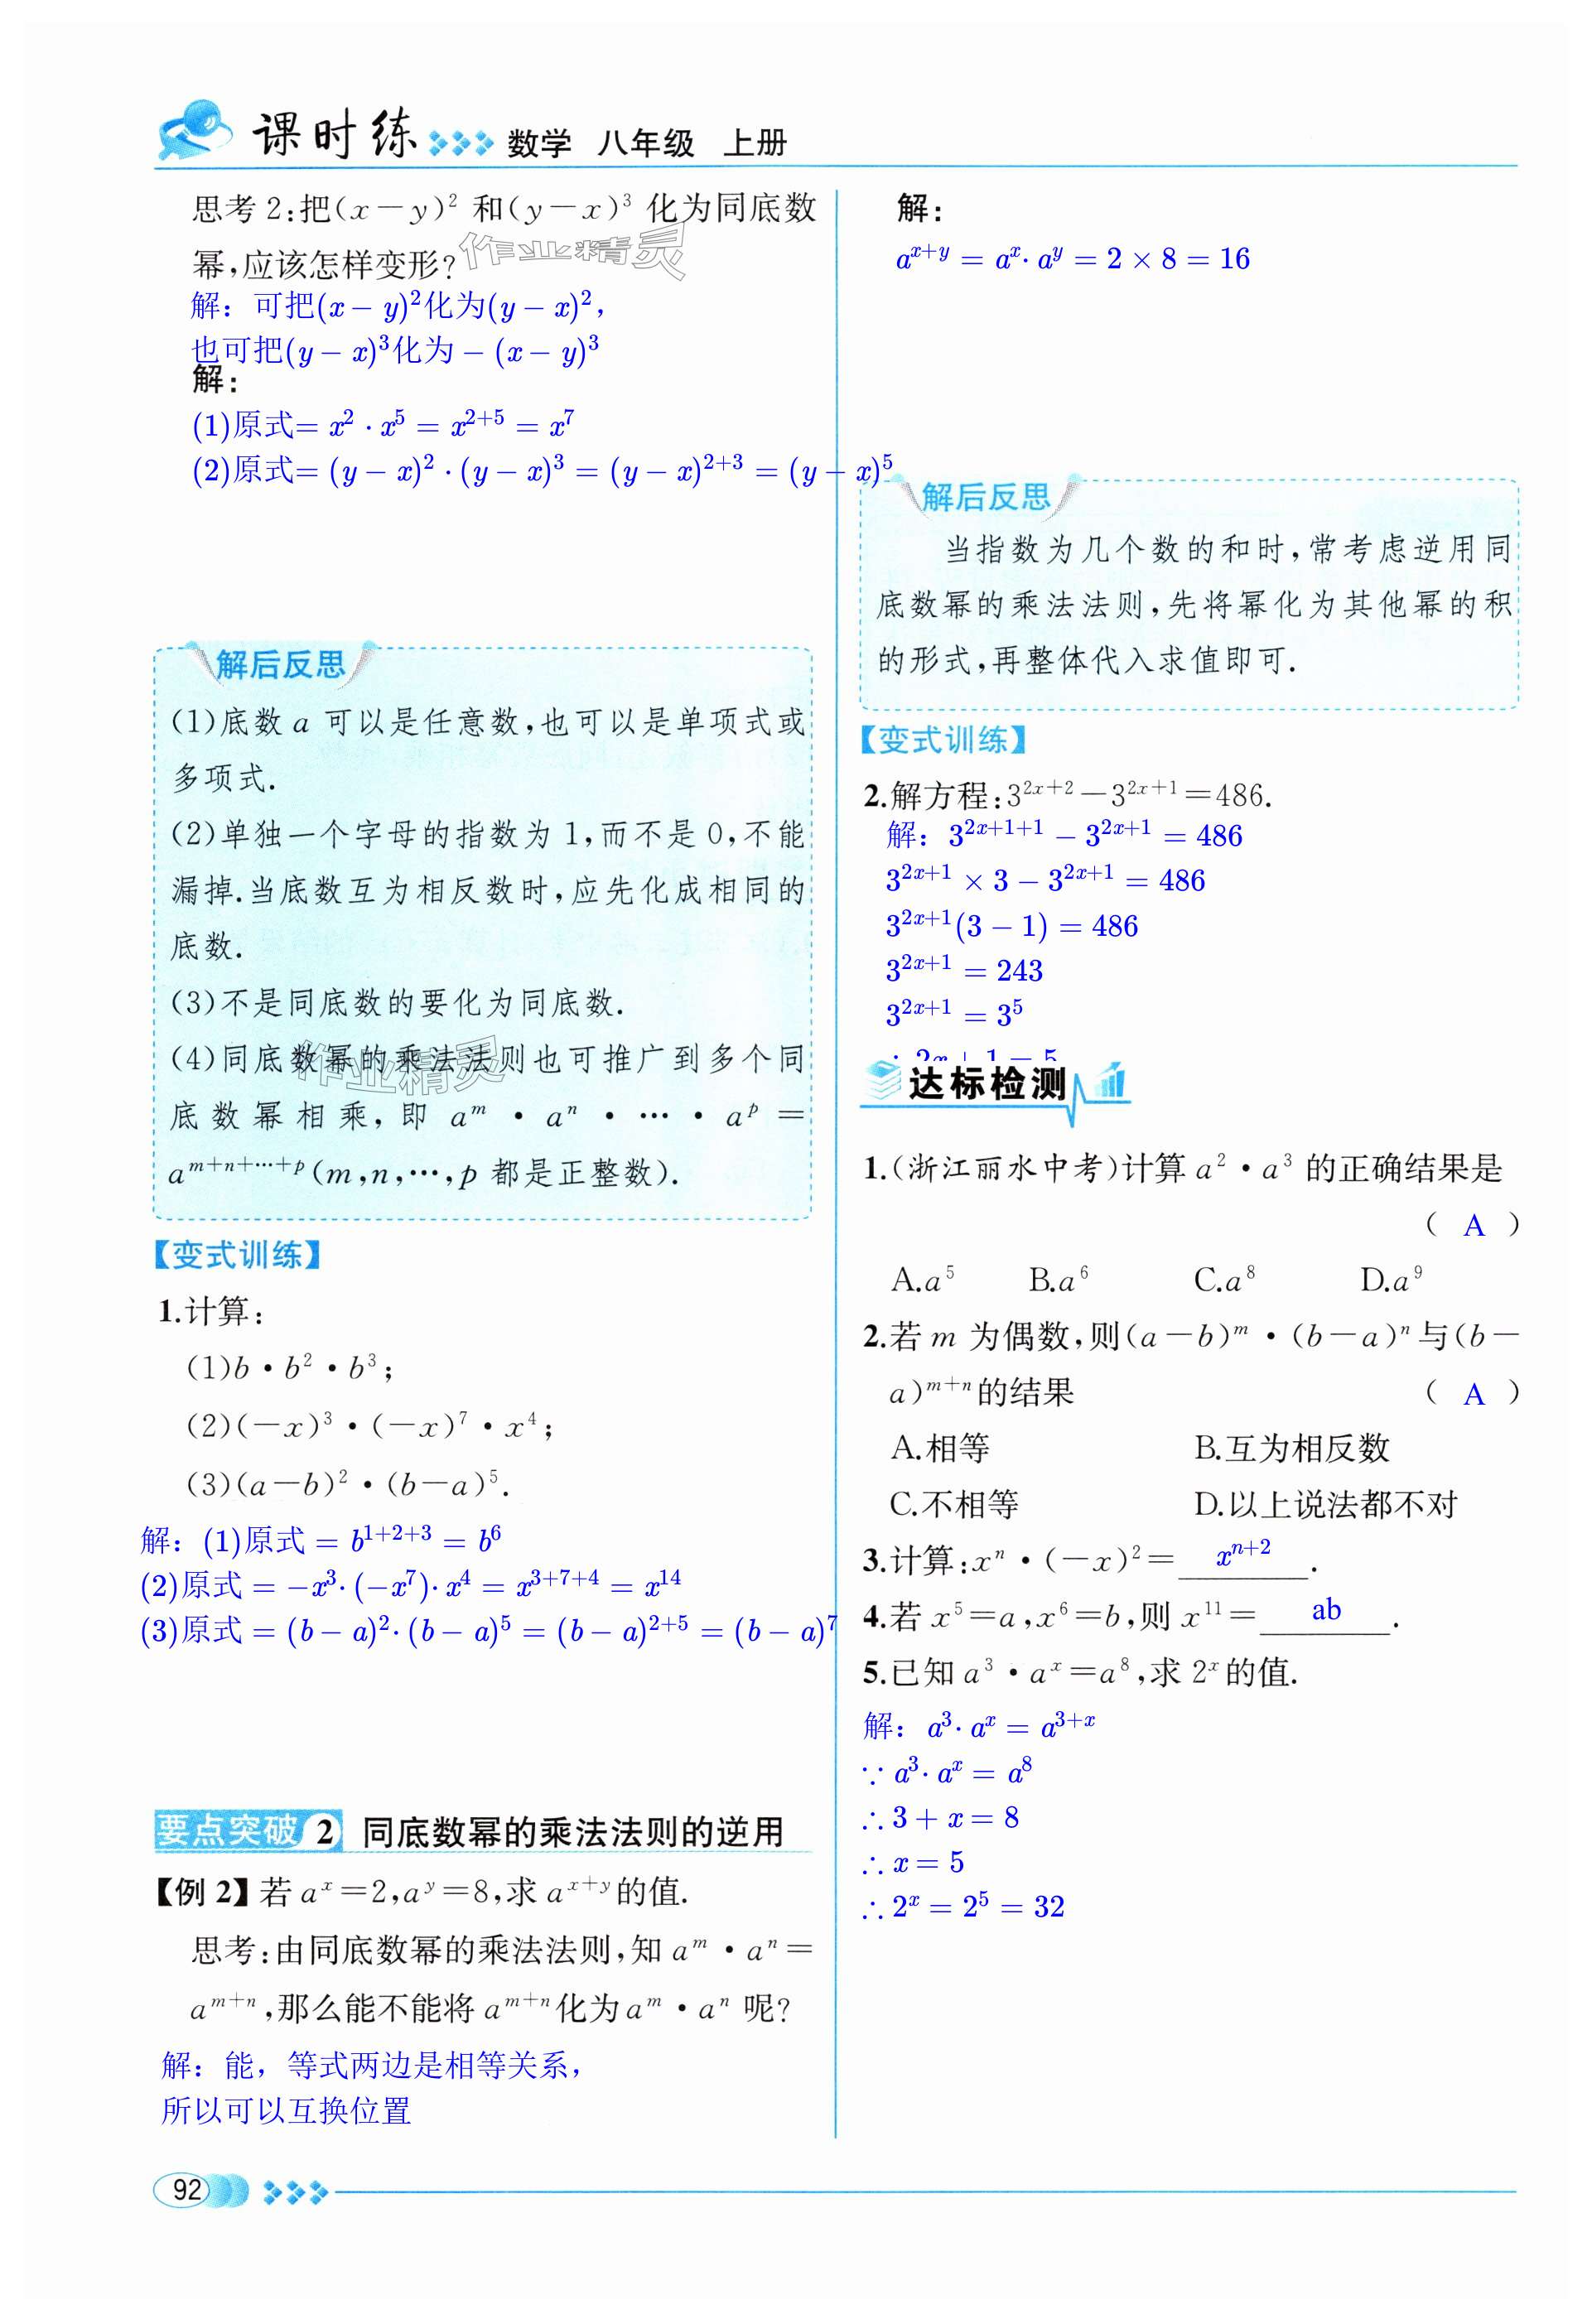 课时练 数学 八年级 上册
思考 2:把(x－y)² 和(y－x)³ 化为同底数
幂,应该怎样变形?
作业精灵
解：可把(x − y)²化为(y − x)²，
也可把(y − x)³化为 − (x − y)³
解：
(1)原式= x² · x⁵ = x²⁺⁵ = x⁷
(2)原式= (y − x)² · (y − x)³ = (y − x)²⁺³ = (y − x)⁵
解后反思
(1)底数 a 可以是任意数,也可以是单项式或
多项式.
(2)单独一个字母的指数为 1,而不是 0,不能
漏掉.当底数互为相反数时,应先化成相同的
底数.
(3)不是同底数的要化为同底数.
(4)同底数幂的乘法法则也可推广到多个同
作业精灵
底数幂相乘, 即 aᵐ · aⁿ · … · aᵖ =
aᵐ⁺ⁿ⁺…⁺ᵖ(m,n,…,p 都是正整数).
【变式训练】
1.计算:
(1)b·b²·b³;
(2)(－x)³·(－x)⁷·x⁴;
(3)(a－b)²·(b－a)⁵.
解：(1)原式 = b¹⁺²⁺³ = b⁶
(2)原式 = −x³· (−x⁷)· x⁴ = x³⁺⁷⁺⁴ = x¹⁴
(3)原式 = (b − a)²· (b − a)⁵ = (b − a)²⁺⁵ = (b − a)⁷
要点突破 2 同底数幂的乘法法则的逆用
【例 2】若 aˣ=2,aʸ=8,求 aˣ⁺ʸ的值.
思考:由同底数幂的乘法法则,知 aᵐ·aⁿ=
aᵐ⁺ⁿ,那么能不能将 aᵐ⁺ⁿ化为 aᵐ·aⁿ 呢?
解：能，等式两边是相等关系，
所以可以互换位置
解：
aˣ⁺ʸ = aˣ· aʸ = 2 × 8 = 16
解后反思
当指数为几个数的和时,常考虑逆用同
底数幂的乘法法则,先将幂化为其他幂的积
的形式,再整体代入求值即可.
【变式训练】
2.解方程:3²ˣ⁺²－3²ˣ⁺¹=486.
解：3²ˣ⁺¹⁺¹ − 3²ˣ⁺¹ = 486
3²ˣ⁺¹ × 3 − 3²ˣ⁺¹ = 486
3²ˣ⁺¹(3 − 1) = 486
3²ˣ⁺¹ = 243
3²ˣ⁺¹ = 3⁵
∴ 2x + 1 = 5
达标检测
1.(浙江丽水中考)计算 a²·a³ 的正确结果是
( A )
A.a⁵ B.a⁶ C.a⁸ D.a⁹
2.若 m 为偶数,则(a－b)ᵐ·(b－a)ⁿ与(b－
a)ᵐ⁺ⁿ的结果 ( A )
A.相等 B.互为相反数
C.不相等 D.以上说法都不对
3.计算:xⁿ·(－x)²= xⁿ⁺² .
4.若 x⁵=a,x⁶=b,则 x¹¹= ab .
5.已知 a³·aˣ=a⁸,求 2ˣ的值.
解：a³· aˣ = a³⁺ˣ
∵ a³· aˣ = a⁸
∴ 3 + x = 8
∴ x = 5
∴ 2ˣ = 2⁵ = 32
92